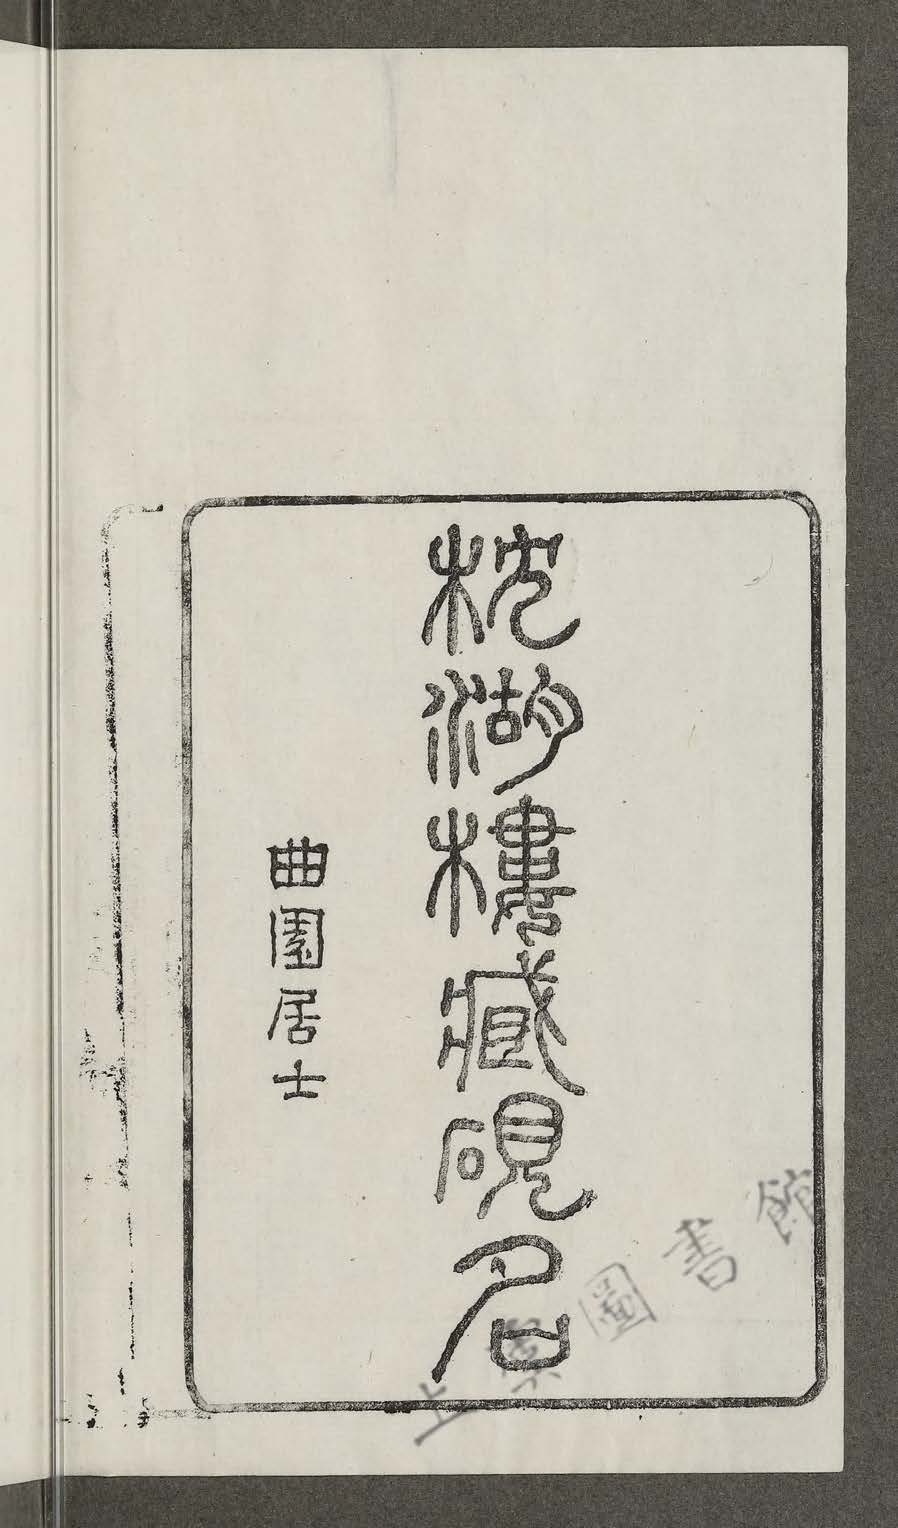 枕湖樓藏硯名
曲園居士
上虞圖書館